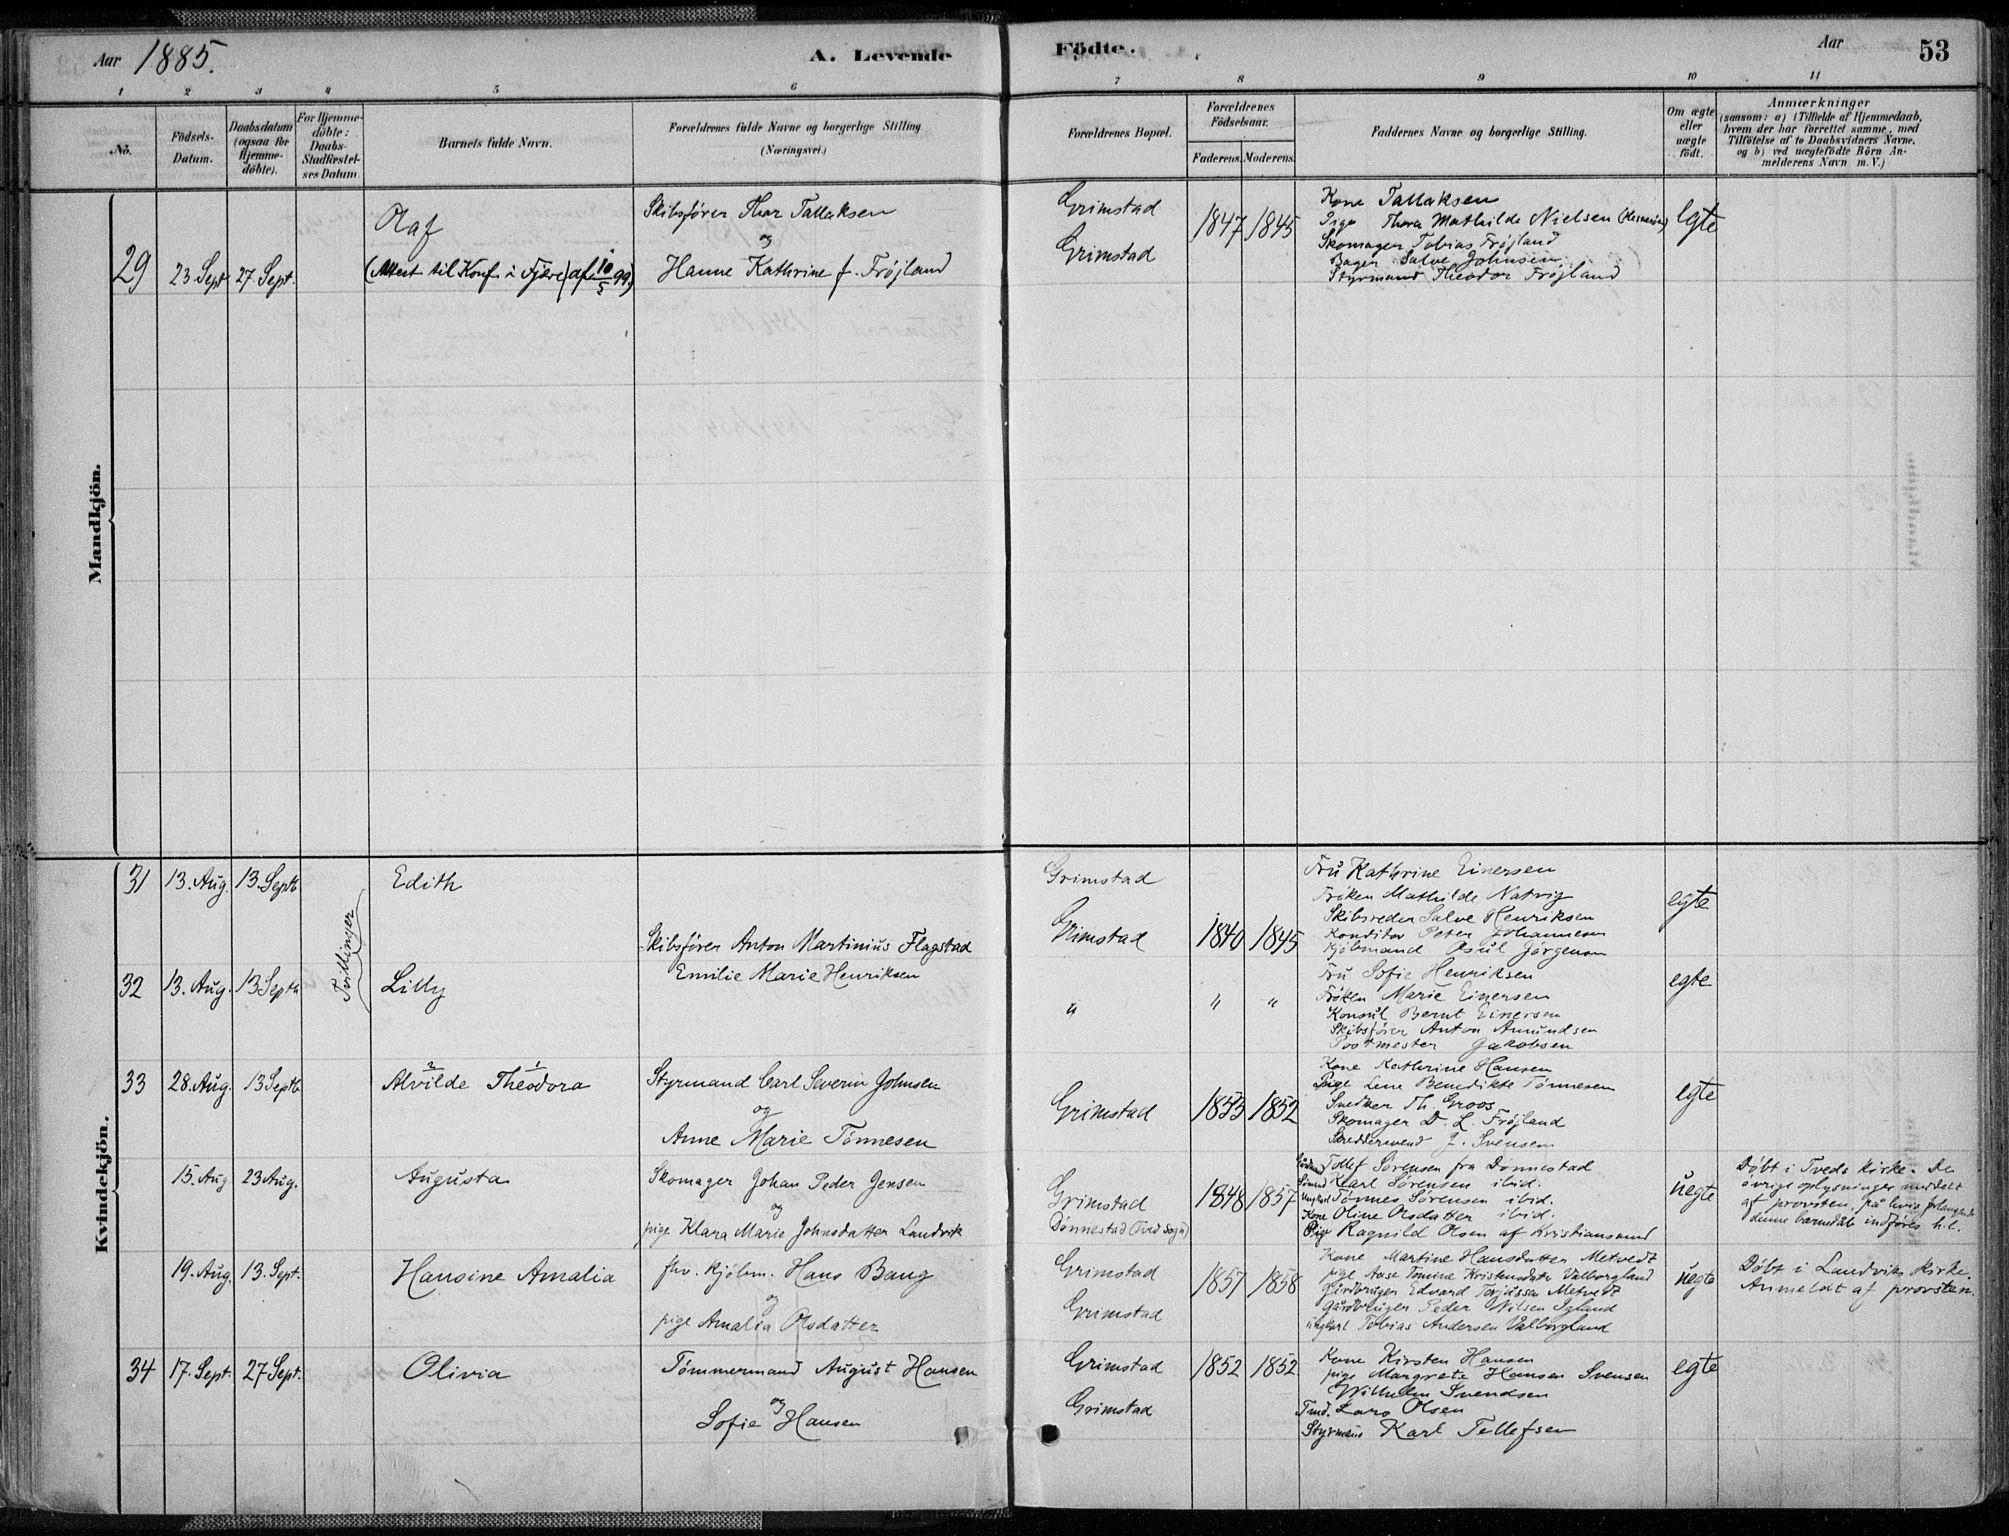 Aar 1885.
A. Levende Födte.
Aar
53
1 2 3 4 5 6 7 8 9 10 11
No.
Födsels-Datum.
Daabsdatum (ogsaa for Hjemme-döbte).
For Hjemme-döbte: Daabs-Stadfæstel-ses Datum.
Barnets fulde Navn.
Forældrenes fulde Navne og borgerlige Stilling (Næringsvei.)
Forældrenes Bopæl.
Forældrenes Födselsaar.
Faderens. Moderens.
Faddernes Navne og borgerlige Stilling.
Om ægte eller uægte födt.
Anmærkninger
(saasom: a) i Tilfælde af Hjemmedaab, hvem der har forrettet samme, med Tilföielse af to Daabsvidners Navne, og b) ved uægtefödte Börn An-melderens Navn m. V.)
Mandkjön.
29 23. Sept. 27. Sept.
Olaf
(Attest til Konf. i Fjære) af 10/5 99)
Skibsfører Thor Tallaksen
og
Hanne Kathrine f. Frøjland
Grimstad
Grimstad
1847 1845
Kone Tallaksen
Pige Thora Mathilde Nielsen
Skomager Tobias Frøjland
Bager Salve Johnsen
Styrmand Theodor Frøjland
egte
Kvindekjön.
31 13. Aug. 13. Septb
Edith
Tvillinger
Skibsfører Anton Martinius Flagstad
Emilie Marie Henriksen
Grimstad
Grimstad
1840 1845
Fru Kathrine Einersen
Frøken Mathilde Natvig
Skibsreder Salve Henriksen
Konditor Peter Johannesen
Kjøbmand Jørgensen
egte
32 13. Aug. 13 Septb
Lilly
" " "
Fru Sofie Henriksen
Frøken Marie Einersen
Konsul Bernt Einersen
Skibsfører Anton Amundsen
Postmester Jakobsen
egte
33 28. Aug. 13 Septb.
2 1
Alvilde Theodora
Styrmand Carl Severin Johnsen
og
Anne Marie Tønnesen
Grimstad
1853 1852
Kone Kathrine Hansen
Pige Lene Benedikte Tønnesen
Snedker Th. Groos
Skomager D. L. Frøjland
Skreddersvend J. Svensen
egte
15. Aug 23 Aug.
Augusta
Skomager Johan Peder Jensen
og
pige Klara Marie Johnsdatter Landvik
Grimstad
Dønnestad (Tved Sogn)
1848 1857
Tollef Sørensen fra Dønnestad
Sømand Karl Sørensen ibid.
Ungkarl Tønnes Sørensen ibid.
Kone Oline Olsdatter ibid.
Pige Ragnild Olsen af Kristianssund
uegte
Døbt i Tveds Kirke. De
övrige oplysninger meddelt
af provsten, på hvis forlangende
denne barnedåb indføres h.l.
19. Aug. 13. Sept.
Hansine Amalia
fhv. Kjøbm. Hans Bang
og
pige Amalia Olsdatter
Grimstad
Grimstad
1857 1858
Kone Martine Hansdatter Metvedt
pige Aase Tomine Kristensdatter Valborgland
Gårdbruger Edvard Terjussen Metvedt
Gårdbruger Peder Nilsen Igland
ungkarl Tobias Andersen Valborgland
uegte
Døbt i Landviks Kirke.
Anmeldt af provsten.
34 17. Sept. 27 Sept.
Olivia
Tømmermand August Hansen
og
Sofie Hansen
Grimstad
Grimstad
1852 1852
Kone Kirsten Hansen
pige Margrete Hansen Svensen
Wilhelm Svendsen
Tmd. Lars Olsen
Styrmand Karl Tellefsen
egte